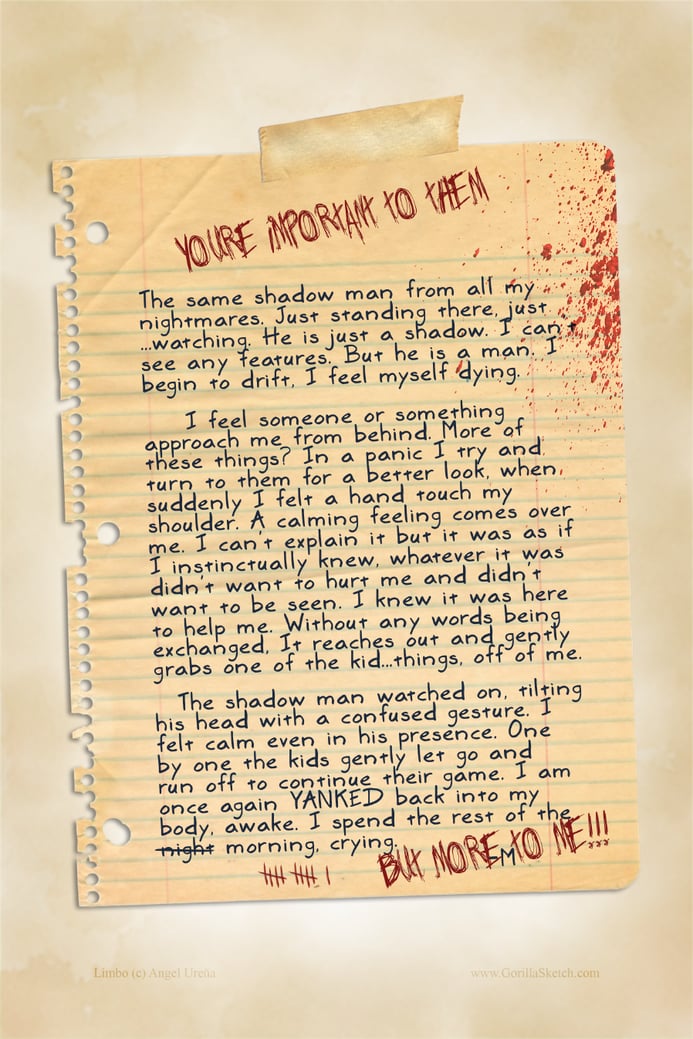 YOURE IMPORTANT TO THEM
The same shadow man from all my
nightmares. Just standing there, just
...watching. He is just a shadow. I can't
see any features. But he is a man. I
begin to drift, I feel myself dying.
I feel someone or something
approach me from behind. More of
these things? In a panic I try and
turn to them for a better look, when
suddenly I felt a hand touch my
shoulder. A calming feeling comes over
me. I can't explain it but it was as if
I instinctually knew, whatever it was
didn't want to hurt me and didn't
want to be seen. I knew it was here
to help me. Without any words being
exchanged, It reaches out and gently
grabs one of the kid...things, off of me.
The shadow man watched on, tilting
his head with a confused gesture. I
felt calm even in his presence. One
by one the kids gently let go and
run off to continue their game. I am
once again YANKED back into my
body, awake. I spend the rest of the
night morning, crying.
EM
BUT MORE TO ME!!!
Limbo (c) Angel Ureña
www.GorillaSketch.com